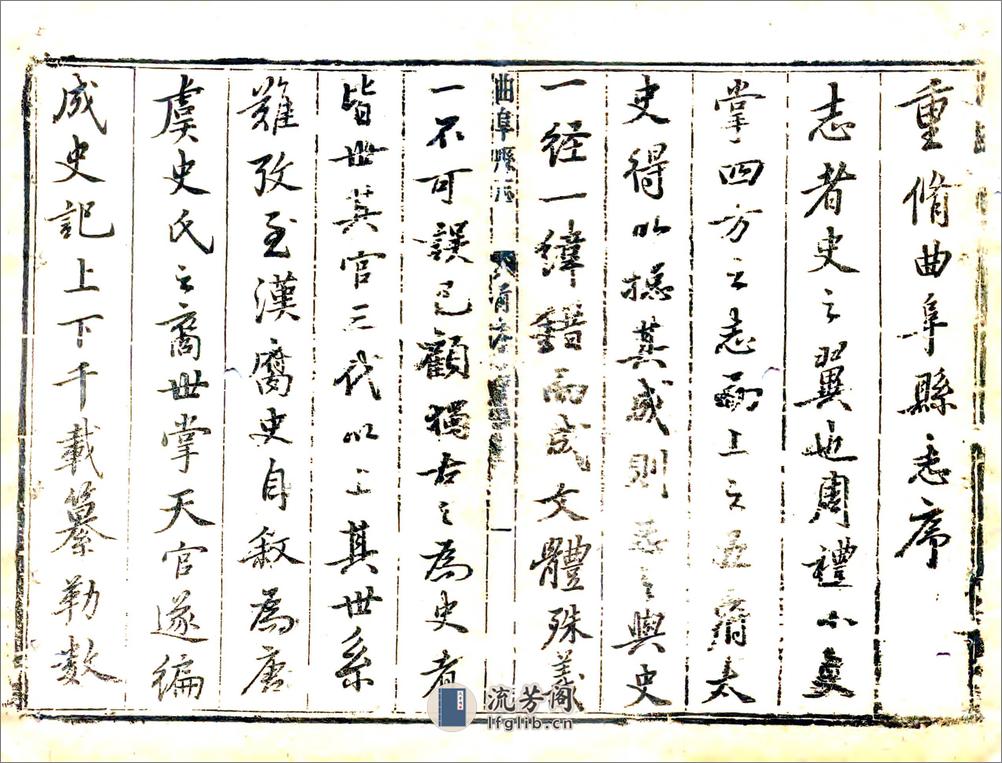 重脩曲阜縣志序
志者史之翼也周禮小史
掌四方之志上之太
史得以據其成則志之與史
一經一緯錯而成文體殊義
曲阜縣志
一
一不可誤已顧獨古之為史者
皆世其官三代以上其世系
難攷至漢腐史自敘為唐
虞史氏之裔世掌天官遂編
成史記上下千載纂勒數
流芳閣
lfglib.cn